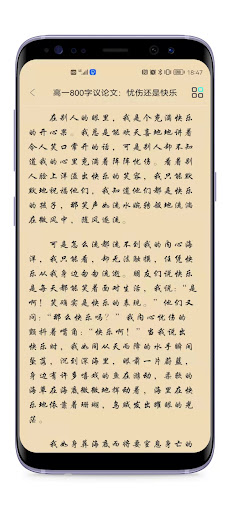 18:47
高一800字议论文：忧伤还是快乐
在别人的眼里，我是个充满快乐
的开心果。我总是能欢天喜地地讲着
令人笑口常开的话，可是别人却不知
道我的心里充满着阵阵忧伤。看着别
人脸上洋溢出快乐的笑容，我只能默
默地祝福他们，我知道他们都是快乐
的，那笑声如流水缤转般地流淌
在微风中，随风远流。
可是怎么流都流不到我的内心海
洋，我只能看，却无法触摸，任凭快
乐从我身边匆匆流逝。朋友们说快乐
是每天都能笑着面对生活，我说：“是
啊！笑确实是快乐的表现。”他们又
问：“那么快乐吗？”我内心忧伤的
颤抖着嘴角：“快乐啊！”当我说出
快乐时，我如同从天而降的水手瞬间
坠落，沉到深海里，眼前一片蔚蓝，
身边有许多嘻戏的鱼在游动，柔软的
海草在海底微微地晃动着，海星在快
乐地依靠着珊瑚，乌贼发出耀眼的光
茫。
我如身葬海底而将要窒息身亡的